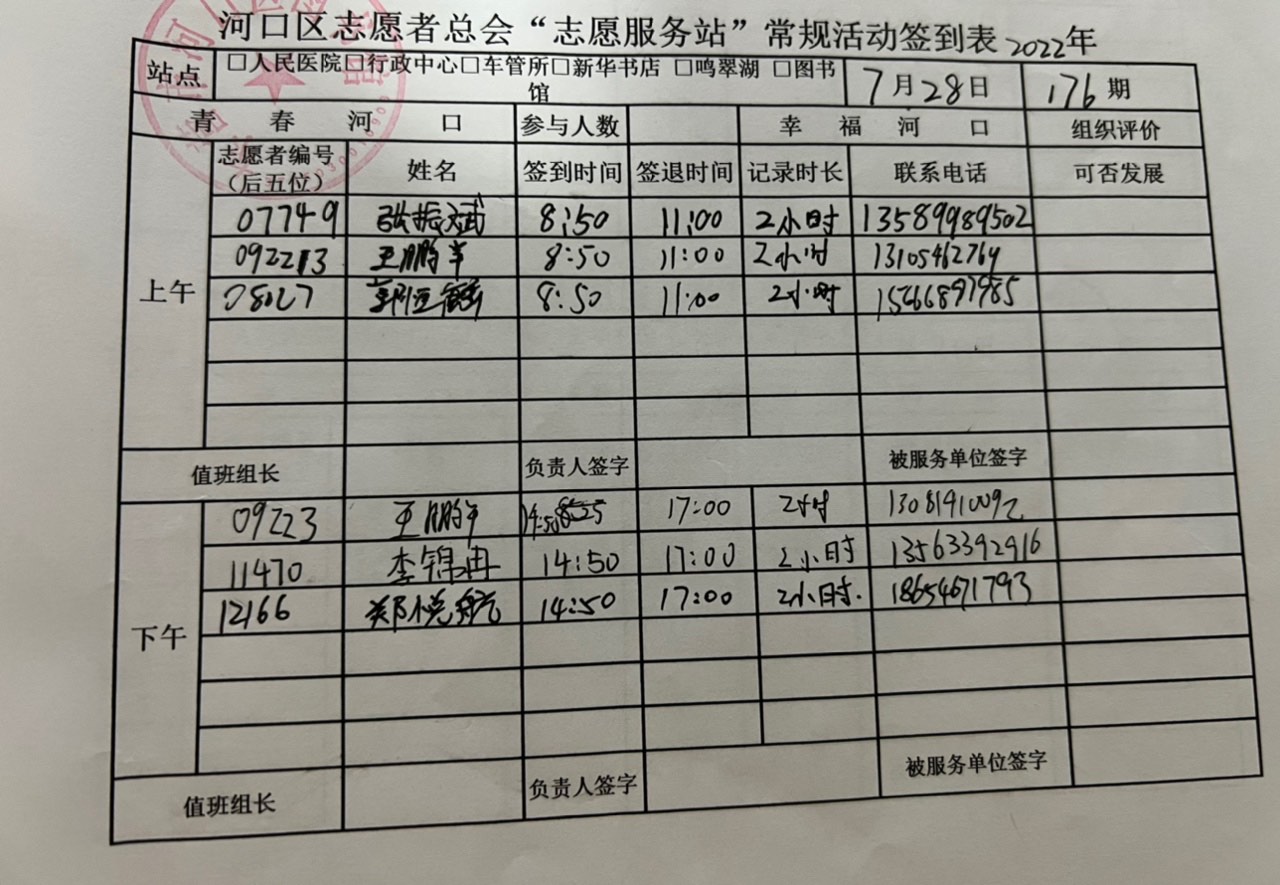 河口区志愿者总会“志愿服务站”常规活动签到表 2022年
站点 □人民医院□行政中心□车管所□新华书店 □鸣翠湖 □图书馆 7月28日 176期
青春河口 参与人数 幸福河口 组织评价
志愿者编号（后五位） 姓名 签到时间 签退时间 记录时长 联系电话 可否发展
上午
07749 张振斌 8:50 11:00 2小时 13589989502
092213 王鹏 8:50 11:00 2小时 13105462764
08027 8:50 11:00 2小时 15666897985
值班组长 负责人签字 被服务单位签字
下午
09223 王鹏 14:50 17:00 2小时 13081410092
11470 李锦冉 14:50 17:00 2小时 13563392916
12166 郑悦 14:50 17:00 2小时. 18654671793
值班组长 负责人签字 被服务单位签字